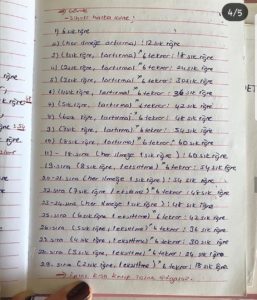 4/5
1) 6 sık iğne
2) (her ilmeğe artırma) : 12 sık iğne
3) (1 sık iğne, 1 artırma) * 6 tekrar : 18 sık iğne
4) (2 sık iğne, 1 artırma) * 6 tekrar : 24 sık iğne
5) (3 sık iğne, 1 artırma) * 6 tekrar : 30 sık iğne
6) (4 sık iğne, 1 artırma) * 6 tekrar : 36 sık iğne
7) (5 sık iğne, 1 artırma) * 6 tekrar : 42 sık iğne
8) (6 sık iğne, 1 artırma) * 6 tekrar : 48 sık iğne
9) (7 sık iğne, 1 artırma) * 6 tekrar : 54 sık iğne
10) (8 sık iğne, 1 artırma) * 6 tekrar : 60 sık iğne
11) - 18.sıra (her ilmeğe 1 sık iğne) : 60 sık iğne
19. sıra (8 sık iğne, 1 eksiltme) * 6 tekrar : 54 sık iğne
20-21.sıra (her ilmeğe 1 sık iğne) : 54 sık iğne
22.sıra (7 sık iğne, 1 eksiltme) * 6 tekrar : 48 sık iğne
23-24.sıra (her ilmeğe 1 sık iğne) : 48 sık iğne
25.sıra (6 sık iğne, 1 eksiltme) * 6 tekrar : 42 sık iğne
26.sıra (5 sık iğne, 1 eksiltme) * 6 tekrar : 36 sık iğne
27.sıra (4 sık iğne, 1 eksiltme) * 6 tekrar : 30 sık iğne
28.sıra (3 sık iğne, 1 eksiltme) * 6 tekrar : 24 sık iğne
29. sıra (2 sık iğne, 1 eksiltme) * 6 tekrar : 18 sık iğne